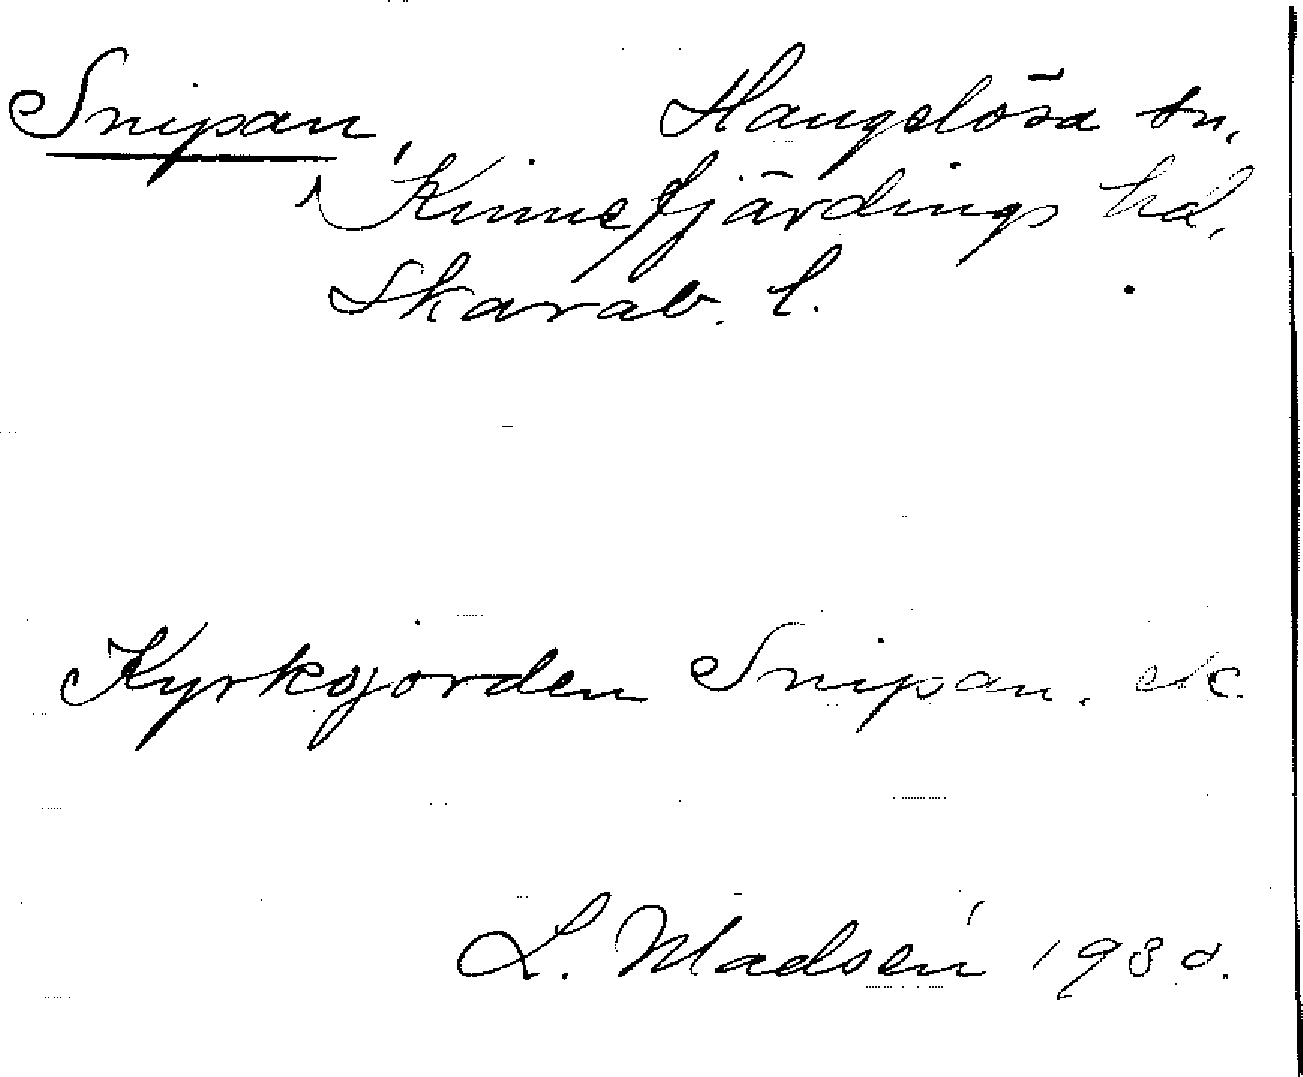 Snipan, Hangelösa sn,
Kinnefjärdings hd,
Skarab. l.
Kyrkojorden Snipan.
L. Madsén 1930.